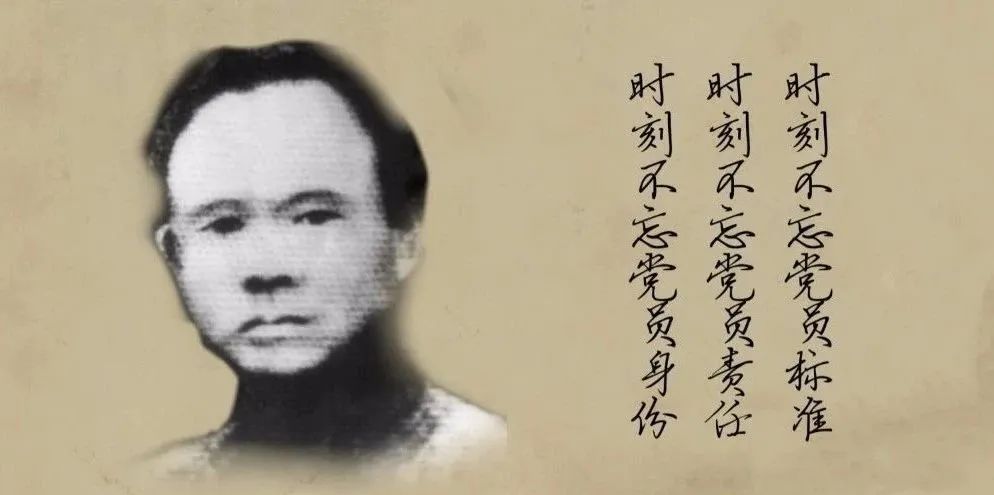 时刻不忘党员标准
时刻不忘党员责任
时刻不忘党员身份